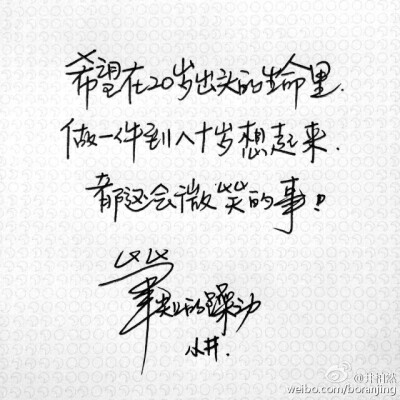 希望在20岁出头的生命里.
做一件到八十岁想起来.
都还会微笑的事!
笔尖的躁动
小井.
@井柏然
weibo.com/boranjing